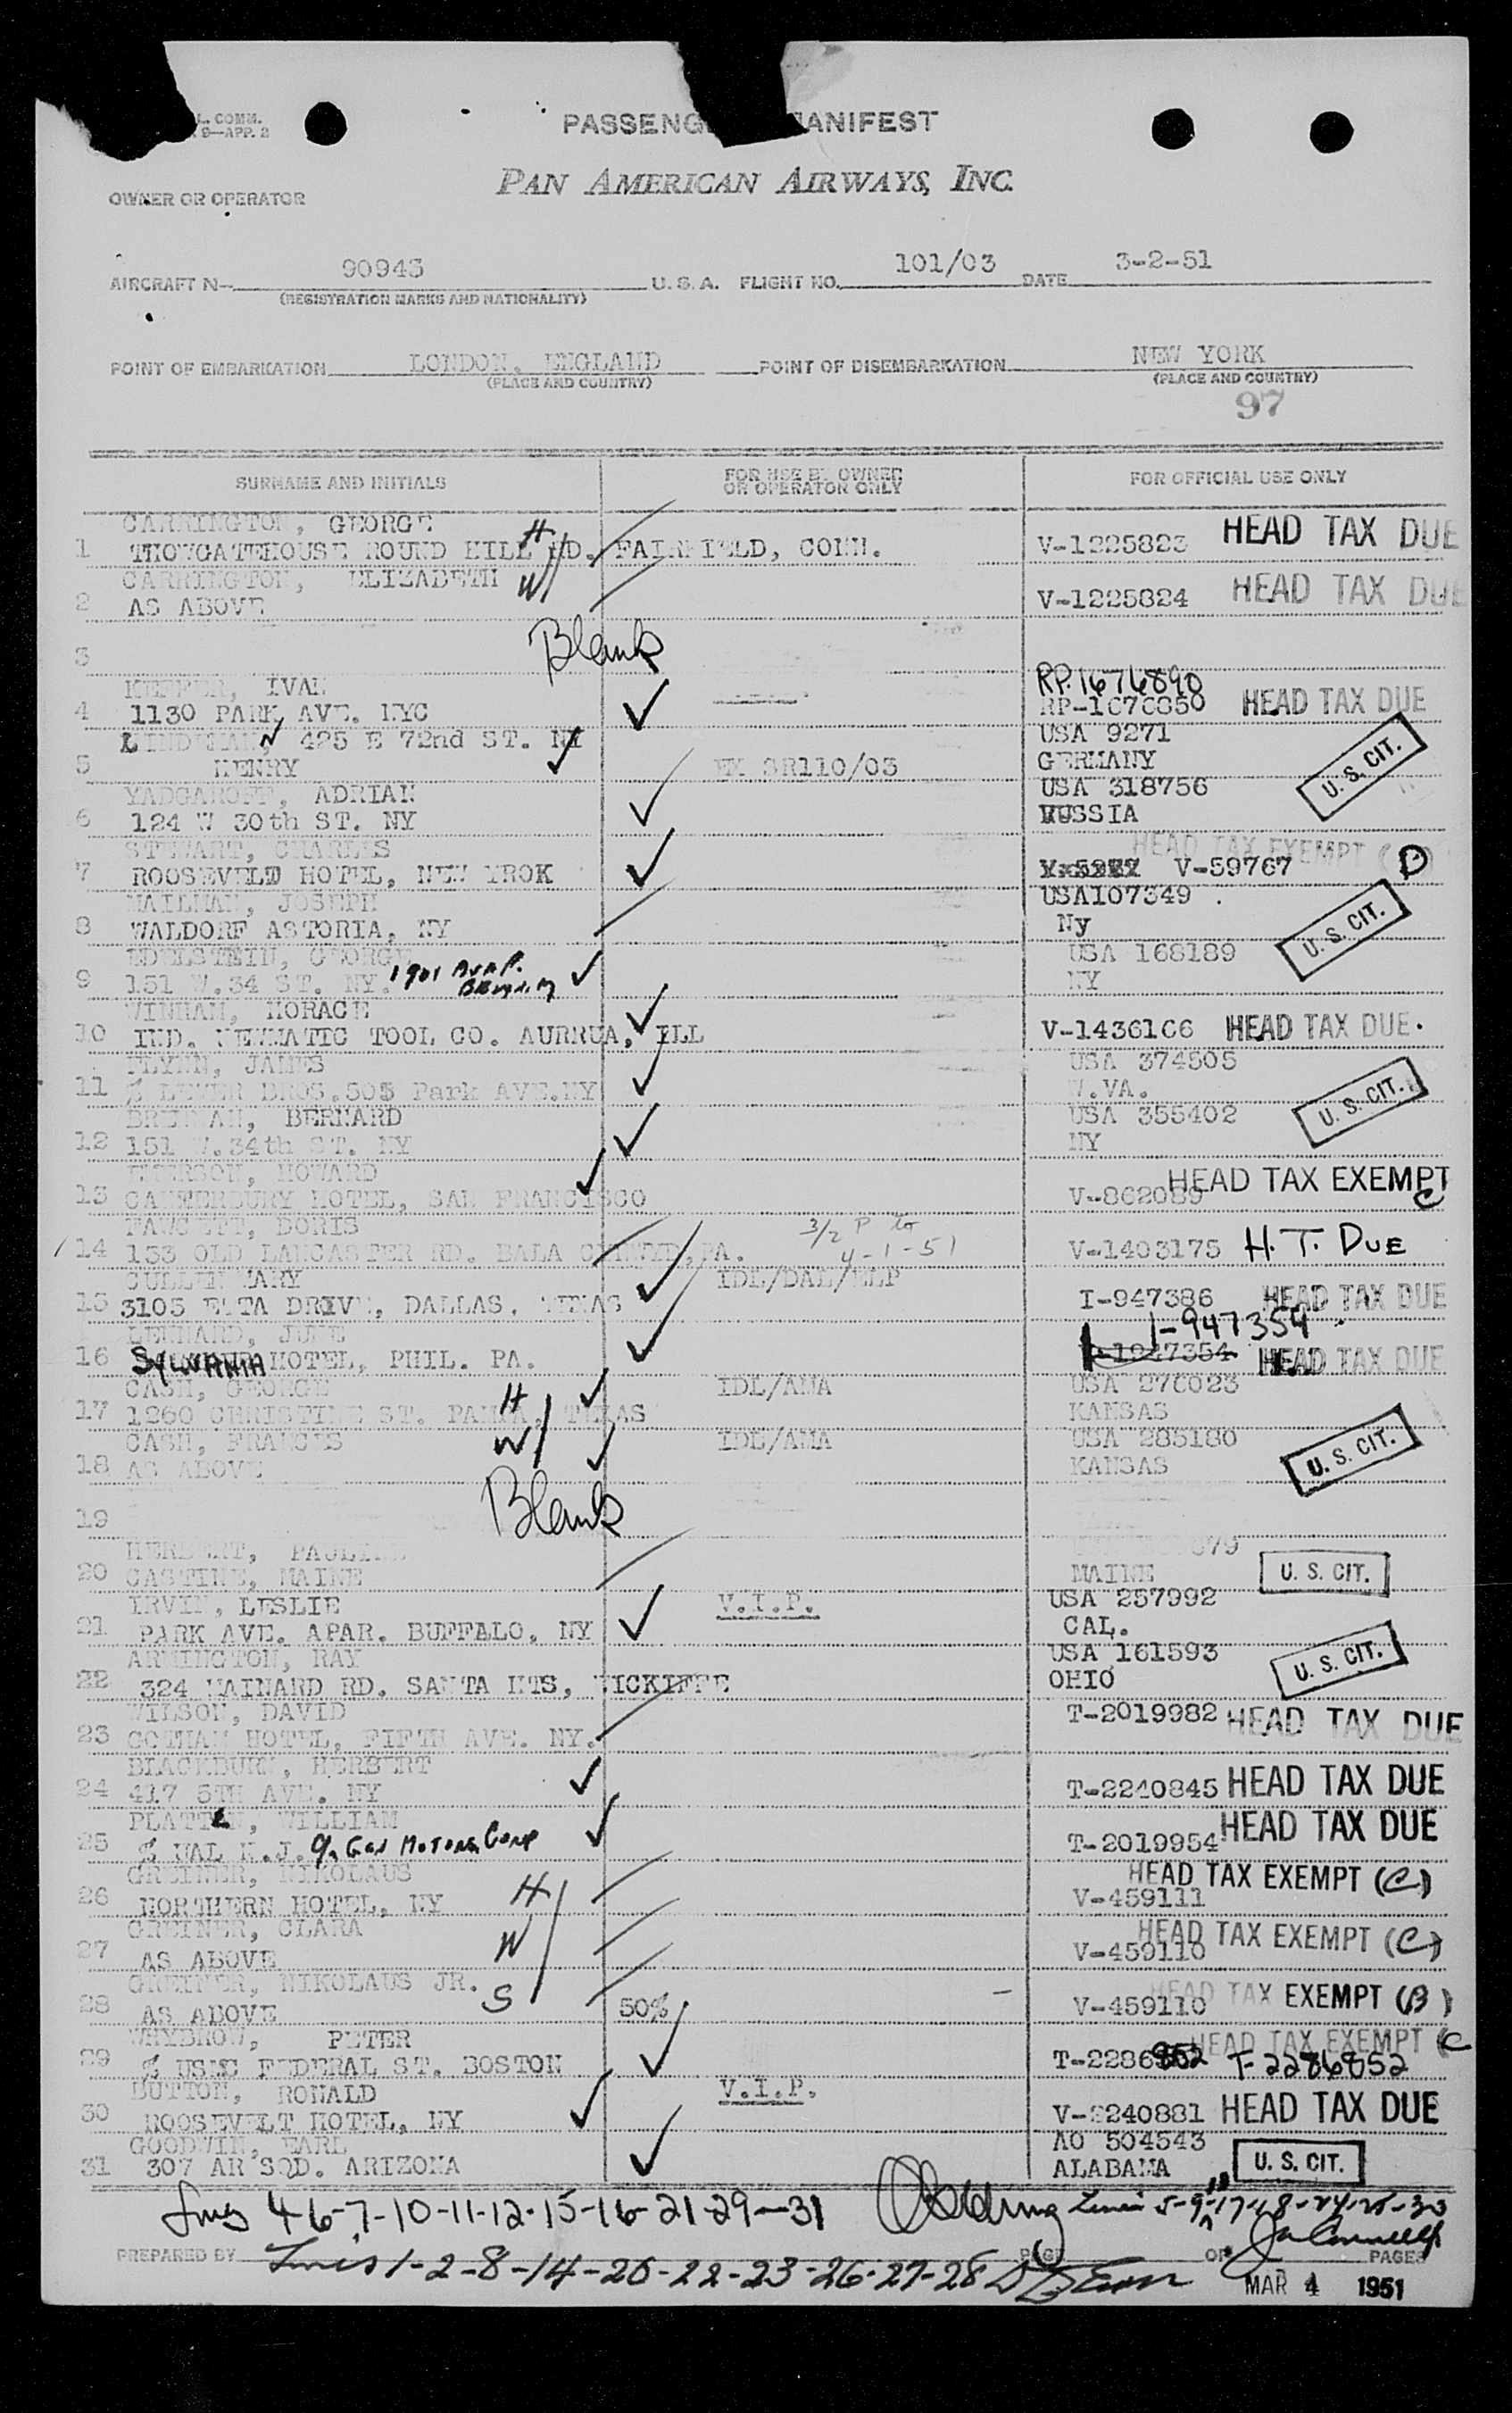 L. COMM.
9—APP. 2
PASSENG ANIFEST
PAN AMERICAN AIRWAYS, INC.
OWNER OR OPERATOR
AIRCRAFT N— 90943 U. S. A. FLIGHT NO. 101/03 DATE 3-2-51
(REGISTRATION MARKS AND NATIONALITY)
POINT OF EMBARKATION LONDON, ENGLAND POINT OF DISEMBARKATION NEW YORK
(PLACE AND COUNTRY) (PLACE AND COUNTRY)
97
SURNAME AND INITIALS FOR USE BY OWNER OR OPERATOR ONLY FOR OFFICIAL USE ONLY
CARRINGTON, GEORGE H
1 THOWGATEHOUSE ROUND HILL RD. FAIRFIELD, CONN. V-1225823 HEAD TAX DUE
CARRINGTON, ELIZABETH W
2 AS ABOVE V-1225824 HEAD TAX DUE
3 Blank
IVAN RP. 1676890
4 1130 PARK AVE. NYC HEAD TAX DUE
425 E 72nd ST. NY USA 9271
5 HENRY SR110/03 GERMANY U. S. CIT.
YADGAROFF, ADRIAN USA 318756
6 124 W 30th ST. NY RUSSIA
STEWART, CHARLES HEAD TAX EXEMPT (D)
7 ROOSEVELD HOTEL, NEW YROK V-59767
MAILMAN, JOSEPH USA107349
8 WALDORF ASTORIA, NY Ny U. S. CIT.
EDELSTEIN, GEORGE USA 168189
9 151 W.34 ST. NY. 1901 NY
HORACE
10 IND. NEWMATIC TOOL CO. AURRUA, ILL V-1436106 HEAD TAX DUE.
FLYNN, JAMES USA 374505
11 % LEVER BROS.505 Park AVE.NY W.VA. U. S. CIT.
BRENNAN, BERNARD USA 355402
12 151 W.34th ST. NY NY
EMERSON, HOWARD
13 CANTERBURY HOTEL, SAN FRANCISCO V-862089 HEAD TAX EXEMPT C
FAWCETT, DORIS 3/2 P to
14 133 OLD LANCASTER RD. BALA CYNWYD,PA. 4-1-51 V-1403175 H. T. DUE
CULLEN MARY IDL/DAL/ELP
15 3105 ETTA DRIVE, DALLAS, TEXAS I-947386 HEAD TAX DUE
LENNARD, JUNE I-947354
16 SYLVANIA HOTEL, PHIL. PA. HEAD TAX DUE
CASH, GEORGE H IDL/AMA USA 276023
17 1260 CHRISTINE ST. PAMPA, TEXAS KANSAS
CASH, FRANCES W IDL/AMA USA 285180
18 AS ABOVE KANSAS U. S. CIT.
19 Blank
HERBERT, PAULINE 079
20 CASTINE, MAINE MAINE U. S. CIT.
IRVIN, LESLIE V.I.P. USA 257992
21 PARK AVE. APAR. BUFFALO, NY CAL.
ARMINGTON, RAY USA 161593
22 324 MAINARD RD. SANTA HTS, WICKIFFE OHIO U. S. CIT.
WILSON, DAVID
23 GOTHAM HOTEL, FIFTH AVE. NY. T-2019982 HEAD TAX DUE
BLACKBURN, HERBERT
24 417 5TH AVE. NY T-2240845 HEAD TAX DUE
WILLIAM
25 Gen Motors Corp T-2019954 HEAD TAX DUE
GREINER, NIKOLAUS H HEAD TAX EXEMPT (C)
26 NORTHERN HOTEL, NY V-459111
GREINER, CLARA W HEAD TAX EXEMPT (C)
27 AS ABOVE V-459110
GREINER, NIKOLAUS JR. S HEAD TAX EXEMPT (B)
28 AS ABOVE 50% V-459110
WHYBROW, PETER HEAD TAX EXEMPT C
29 % USMC FEDERAL ST. BOSTON T-2286852 T-2286852
BUTTON, RONALD V.I.P.
30 ROOSEVELT HOTEL, NY V-2240881 HEAD TAX DUE
GOODWIN, EARL AO 504543
31 307 AR SQD. ARIZONA ALABAMA U. S. CIT.
4-6-7-10-11-12-15-16-21-29-31
PREPARED BY Lines 1-2-8-14-20-22-23-26-27-28 PAGE OF PAGES
MAR 4 1951